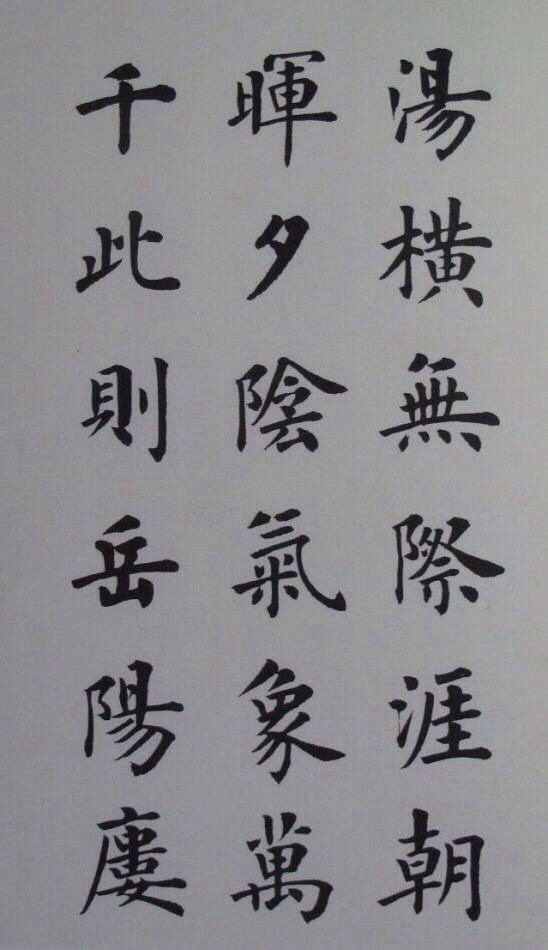 湯横無際涯朝
暉夕陰氣象萬
千此則岳陽廔